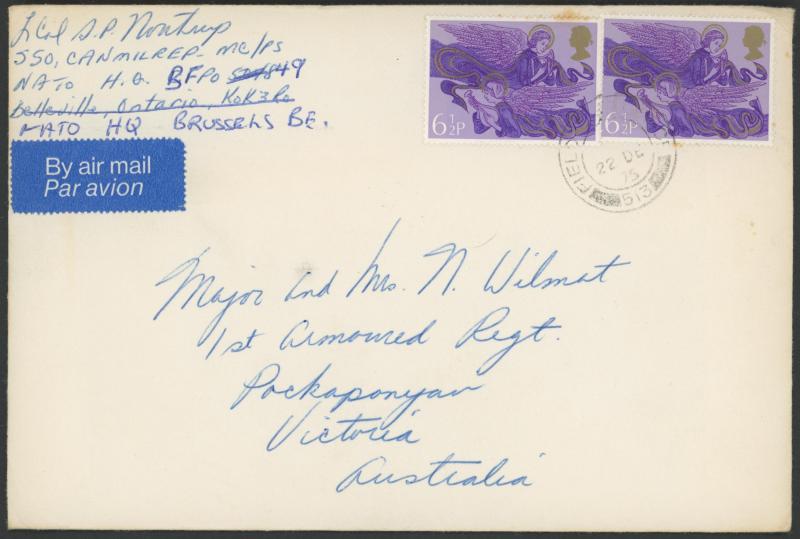 LCol S.P. Northrup
SSO, CANMILREP- MC/PS
NATO H.Q. BFPO 49
Belleville, Ontario, K0K
NATO HQ BRUSSELS BE.
By air mail
Par avion
6½P
6½P
FIEL
22 DE
75
513
Major and Mrs. N. Wilmat
1st Armoured Regt.
Pockaponyav
Victoria
Australia